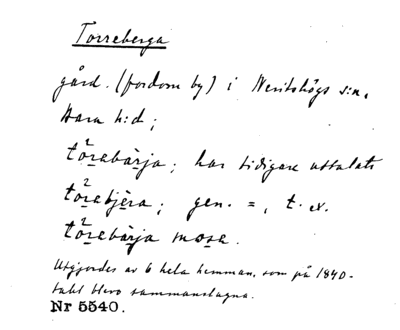 Torreberga
gård. (fordom by) i Nevitshögs s:n,
Bara h:d;
tòrebàrja; har tidigare uttalats
tòrebjèra; gen. =, t. ex.
tòrebàrja mosa.
Utgjordes av 6 hela hemman, som på 1840-
talet blevo sammanslagna.
Nr 5540.